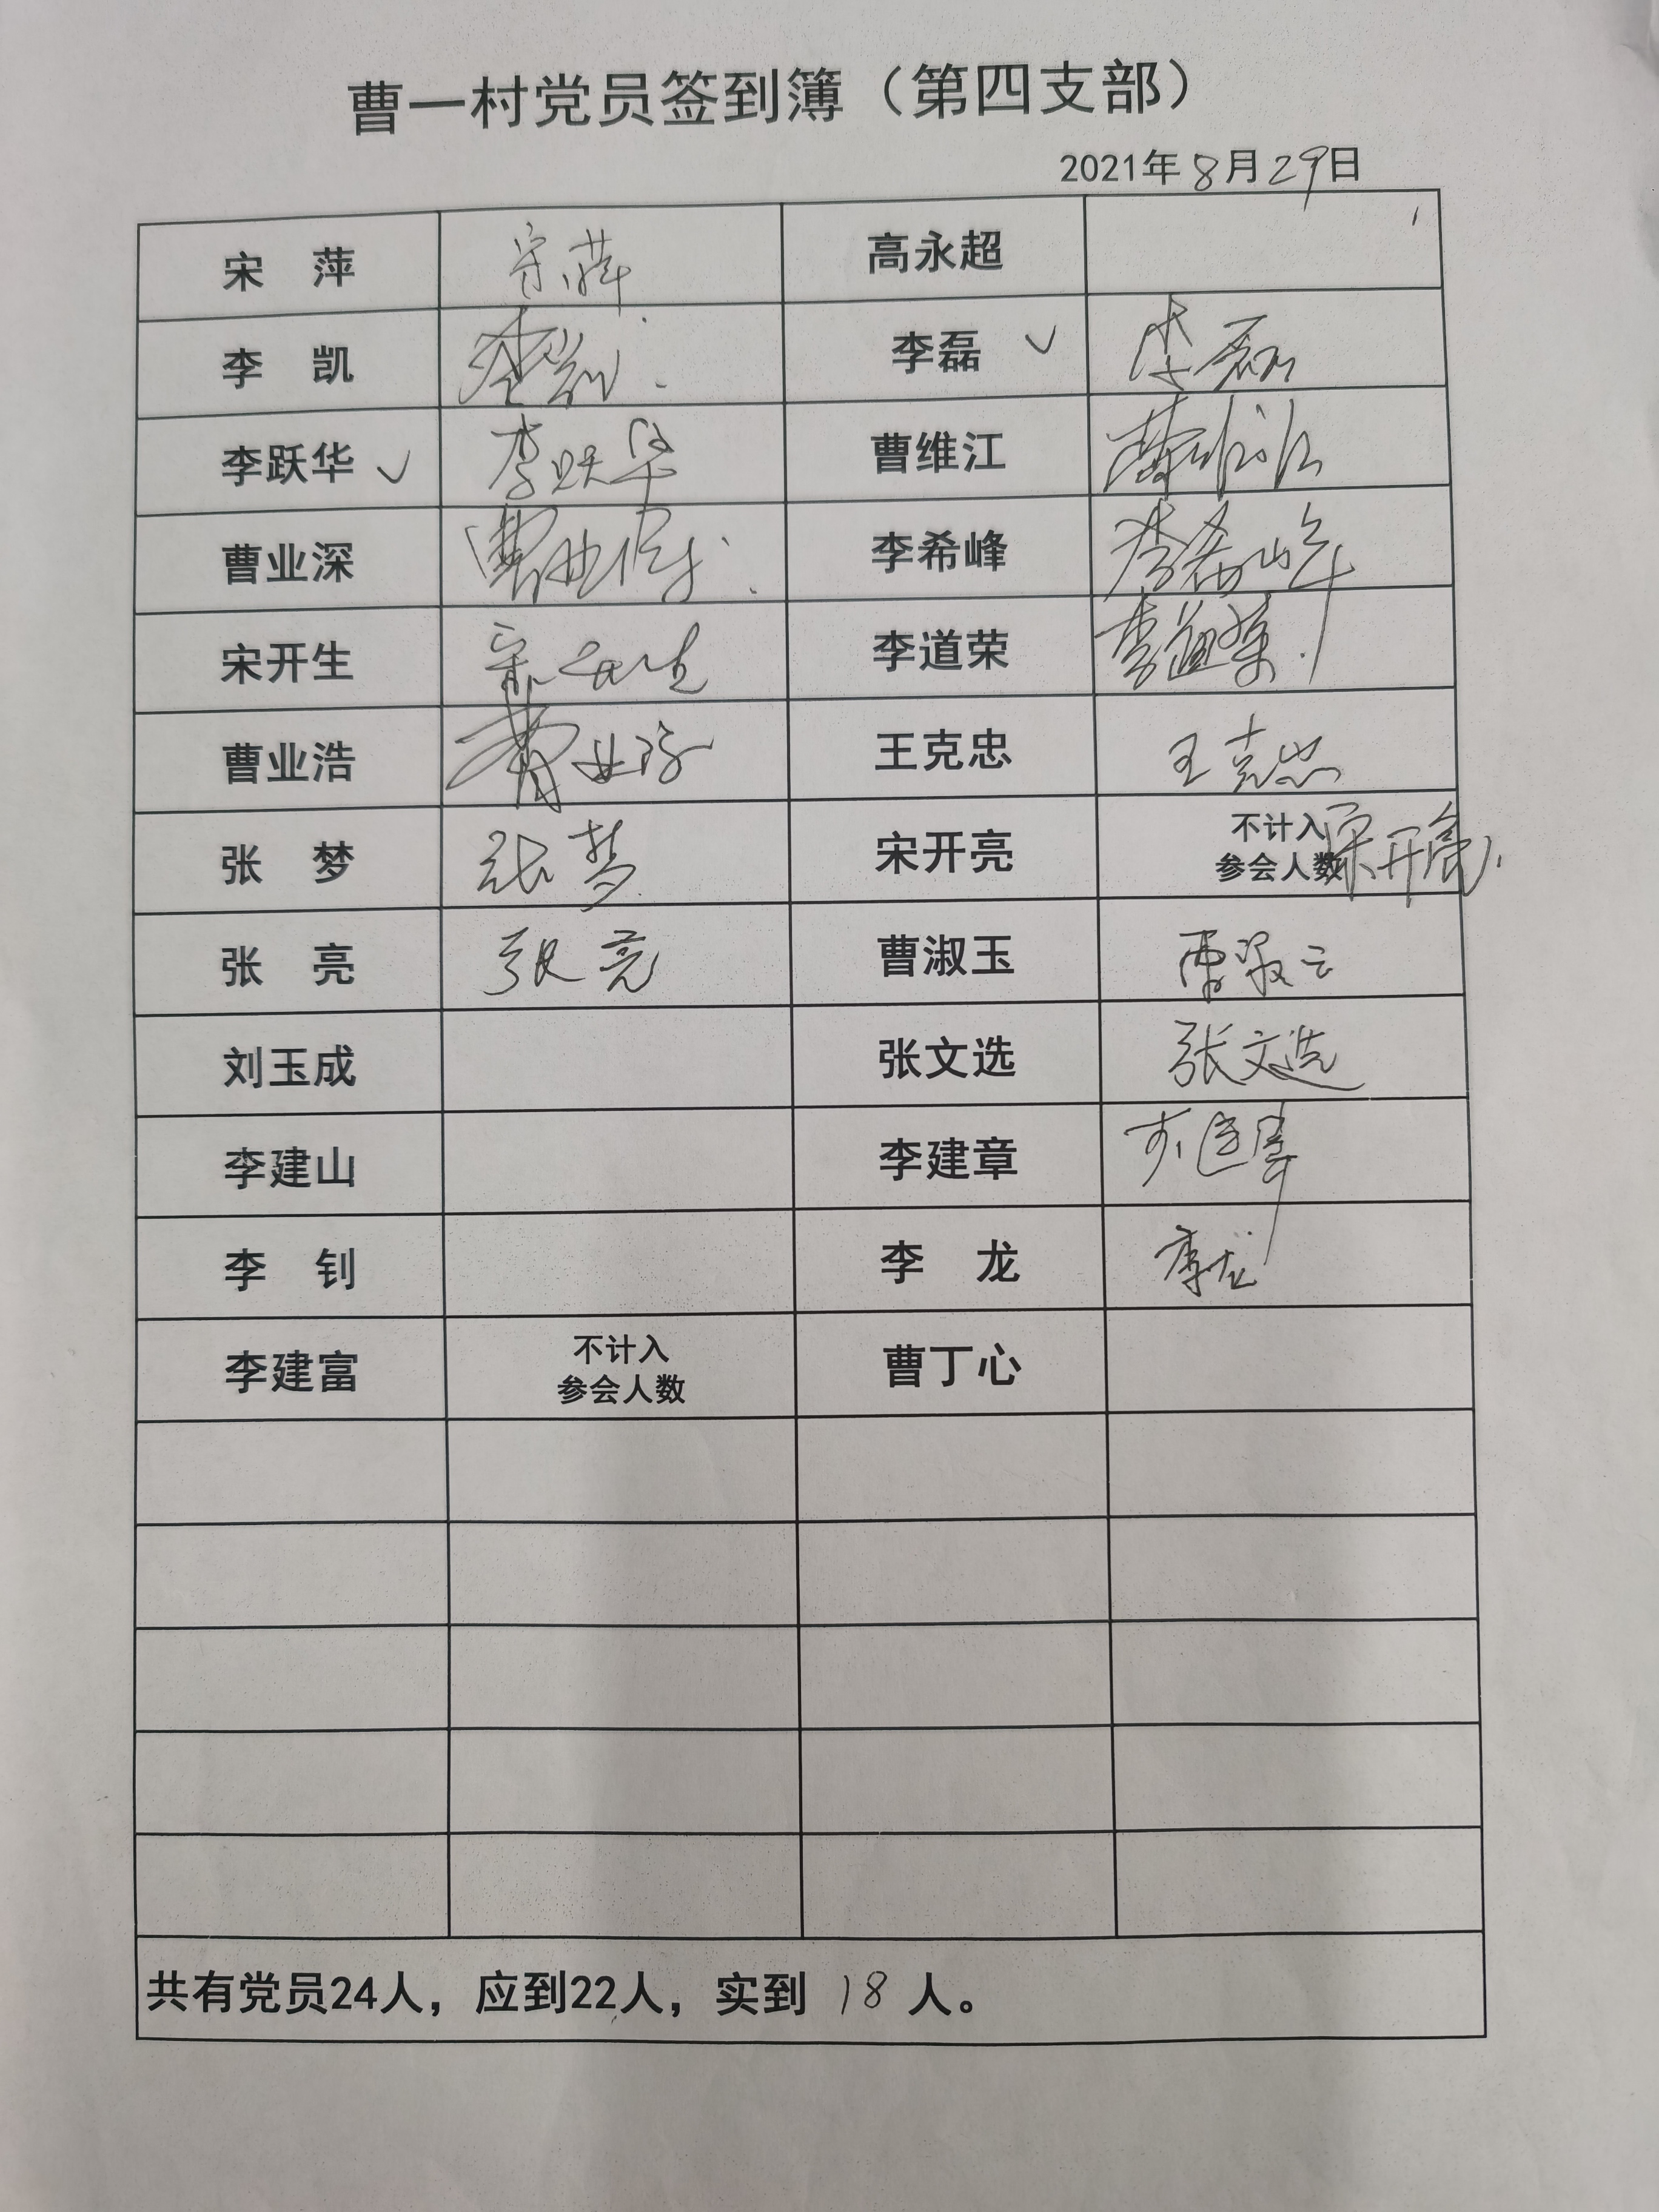 曹一村党员签到簿（第四支部）
2021年8月29日
宋 萍 宋萍 高永超
李 凯 李凯 李磊 ✓ 李磊
李跃华 ✓ 李跃华 曹维江 曹维江
曹业深 李希峰 李希峰
宋开生 宋开生 李道荣 李道荣
曹业浩 曹业浩 王克忠 王克忠
张 梦 张梦 宋开亮 不计入
参会人数 宋开亮
张 亮 张亮 曹淑玉 曹淑云
刘玉成 张文选 张文选
李建山 李建章 李建章
李 钊 李 龙 李龙
李建富 不计入
参会人数 曹丁心
共有党员24人，应到22人，实到 18 人。